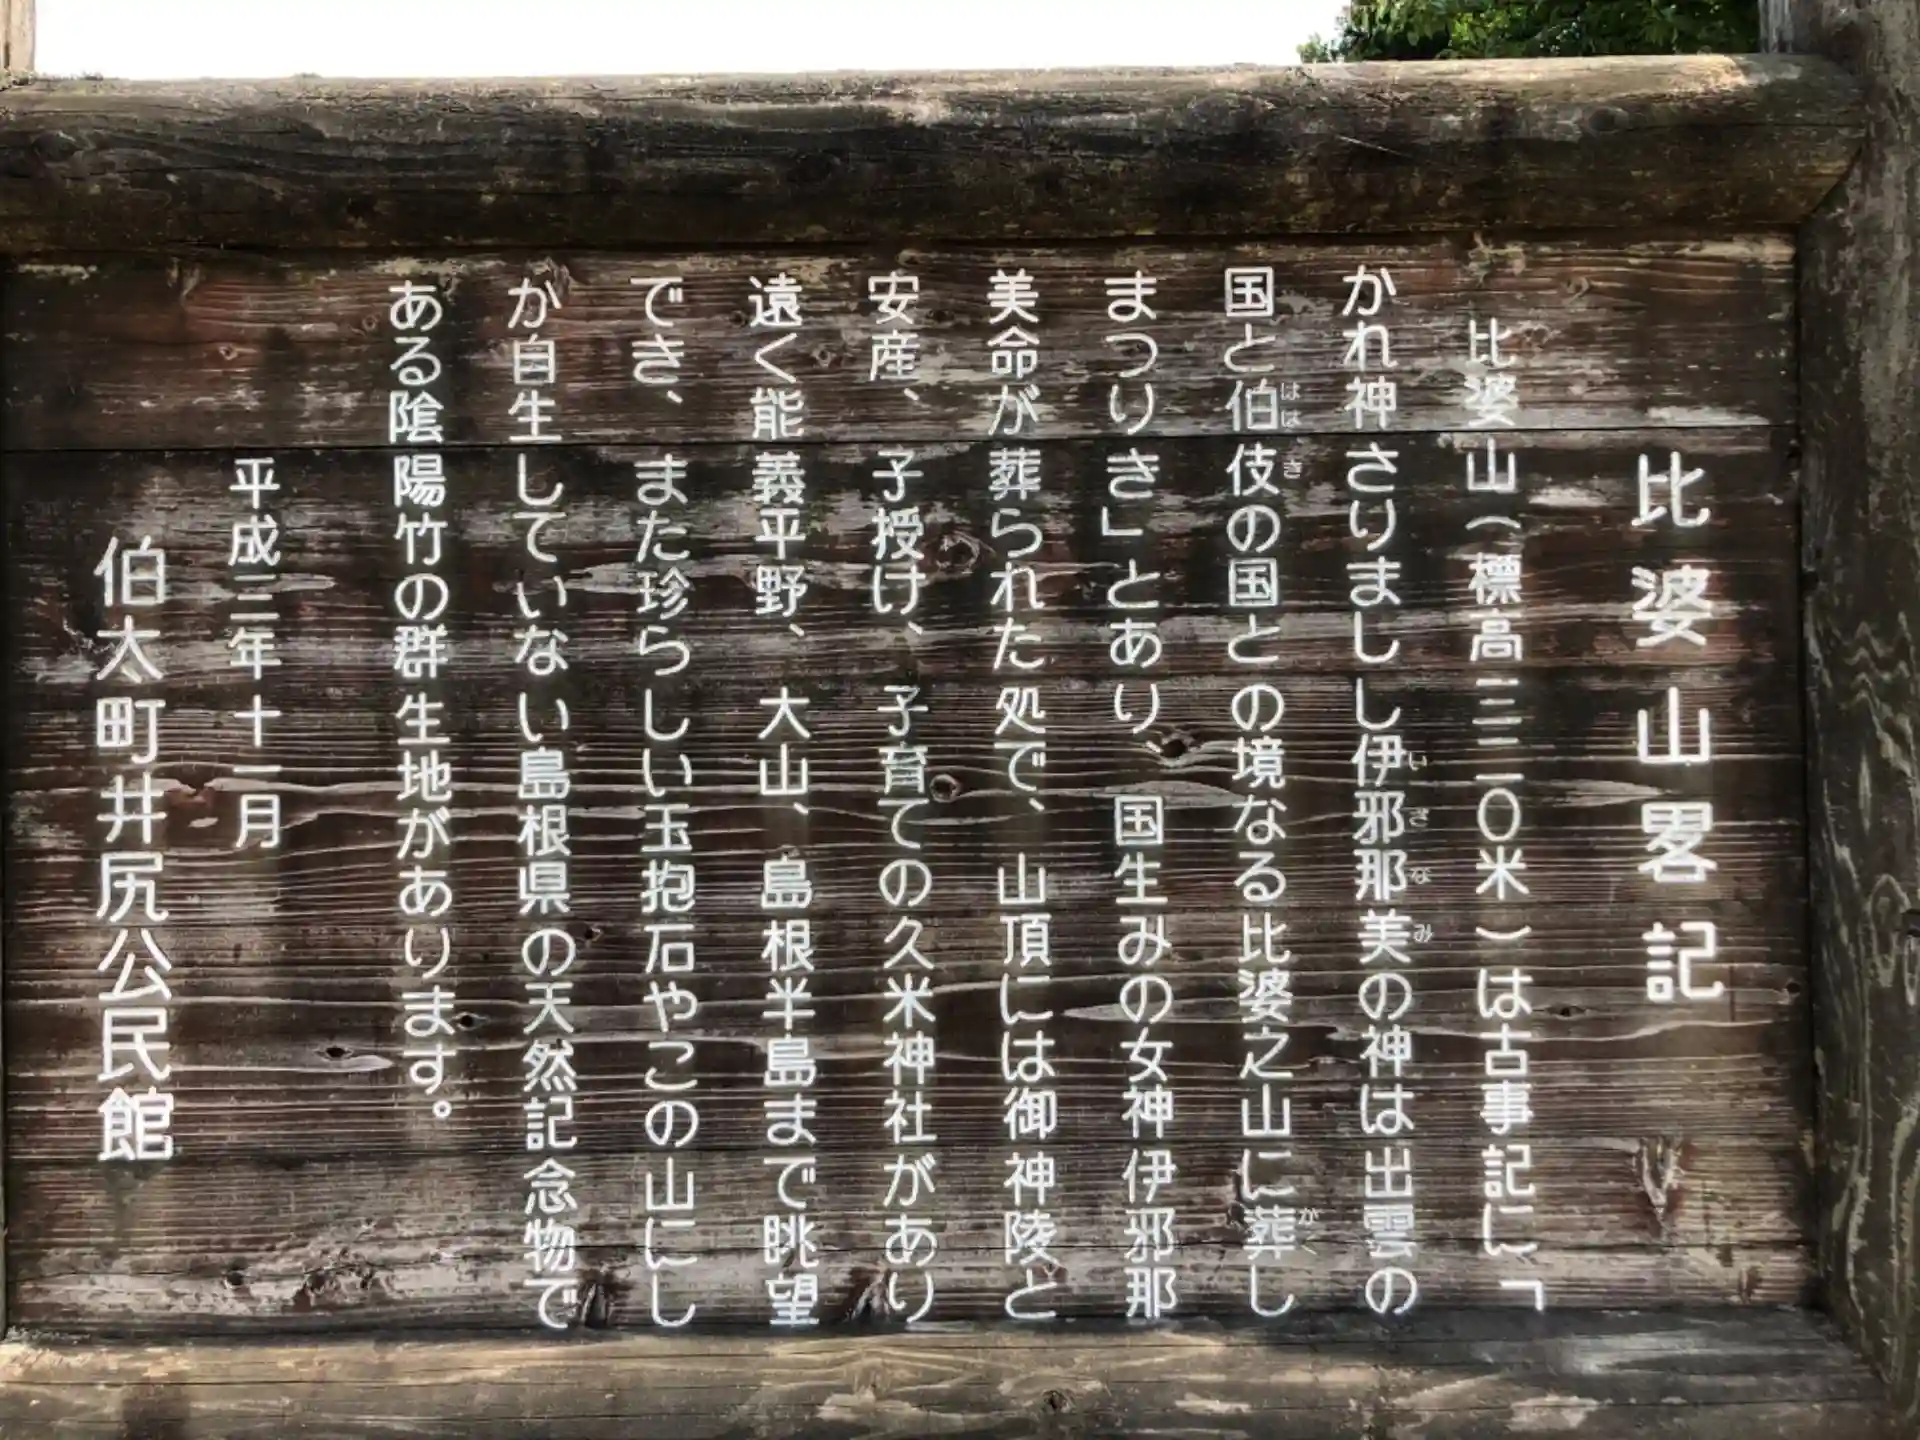 比婆山畧記
比婆山（標高三三一〇米）は古事記に「
かれ神さりましし伊邪那美の神は出雲の
国と伯伎の国との境なる比婆之山に葬し
まつりき」とあり 国生みの女神伊邪那
美命が葬られた処で、山頂には御神陵と
安産、子授け、子育ての久米神社があり
遠く能義平野、大山、島根半島まで眺望
でき、また珍らしい玉抱石やこの山にし
か自生していない島根県の天然記念物で
ある陰陽竹の群生地があります。
平成三年十一月
伯太町井尻公民館